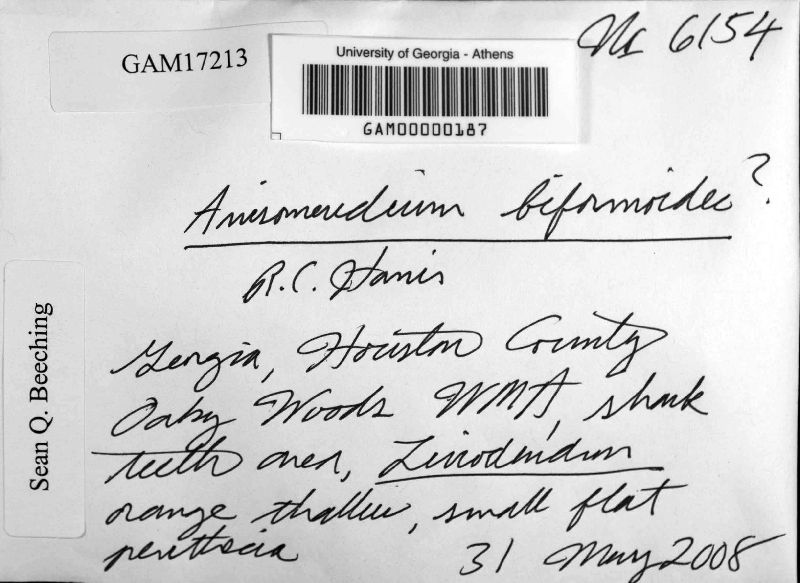 GAM17213
University of Georgia - Athens
GAM00000187
No 6154
Anisomeridium biformoides?
R.C. Harris
Georgia, Houston County
Oaky Woods WMA, shark
teeth area, Liriodendrum
orange thallus, small flat
perithecia 31 May 2008
Sean Q. Beeching